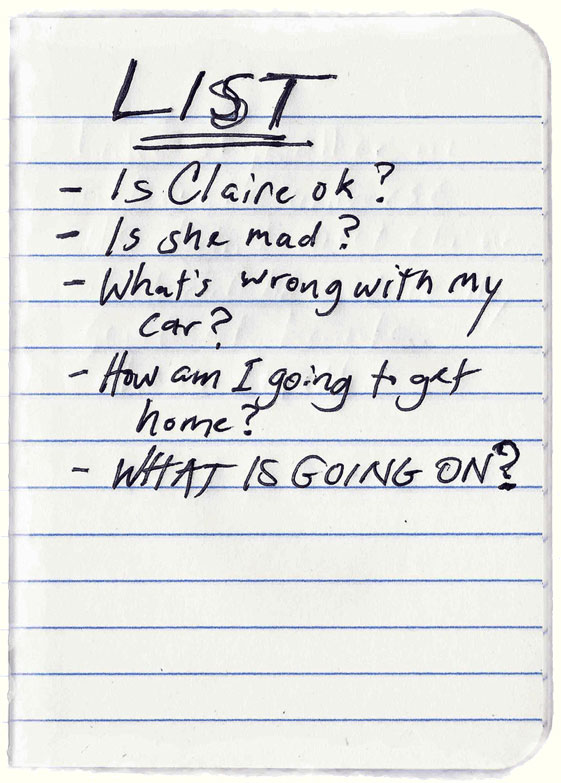 LIST
- Is Claire ok?
- Is she mad?
- What's wrong with my
car?
- How am I going to get
home?
- WHAT IS GOING ON?